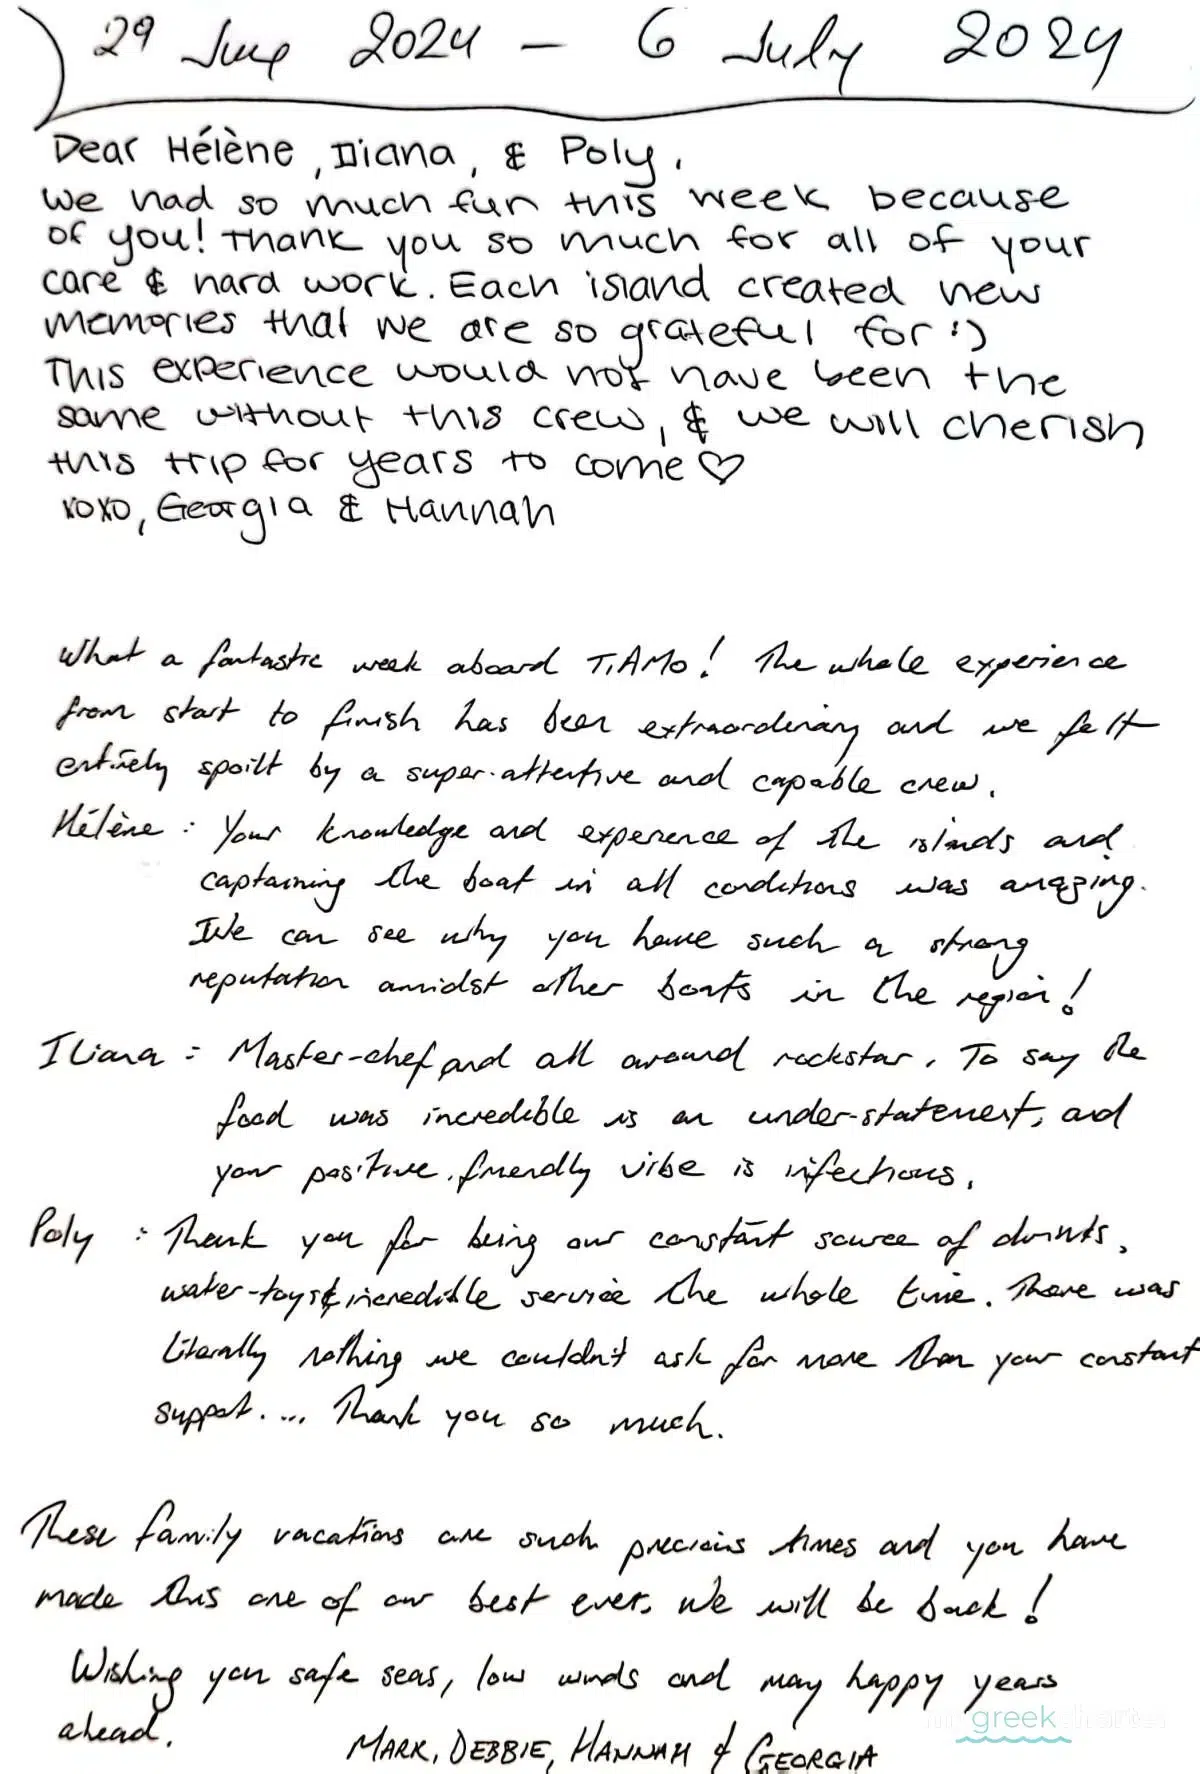 29 June 2024 – 6 July 2024
Dear Hélène, Iliana, & Poly,
We had so much fun this week because
of you! Thank you so much for all of your
care & hard work. Each island created new
memories that we are so grateful for :)
This experience would not have been the
same without this crew, & we will cherish
this trip for years to come ♡
xoxo, Georgia & Hannah
What a fantastic week aboard TiAMO! The whole experience
from start to finish has been extraordinary and we felt
entirely spoilt by a super-attentive and capable crew.
Hélène : Your knowledge and experience of the islands and
captaining the boat in all conditions was amazing.
We can see why you have such a strong
reputation amidst other boats in the region!
Iliana : Master-chef and all around rockstar. To say the
food was incredible is an under-statement, and
your positive, friendly vibe is infectious.
Poly : Thank you for being our constant source of drinks,
water-toys & incredible service the whole time. There was
literally nothing we couldn't ask for more than your constant
support. ... Thank you so much.
These family vacations are such precious times and you have
made this one of our best ever. We will be back!
Wishing you safe seas, low winds and may happy years
ahead.
MARK, DEBBIE, HANNAH & GEORGIA
my greek charter